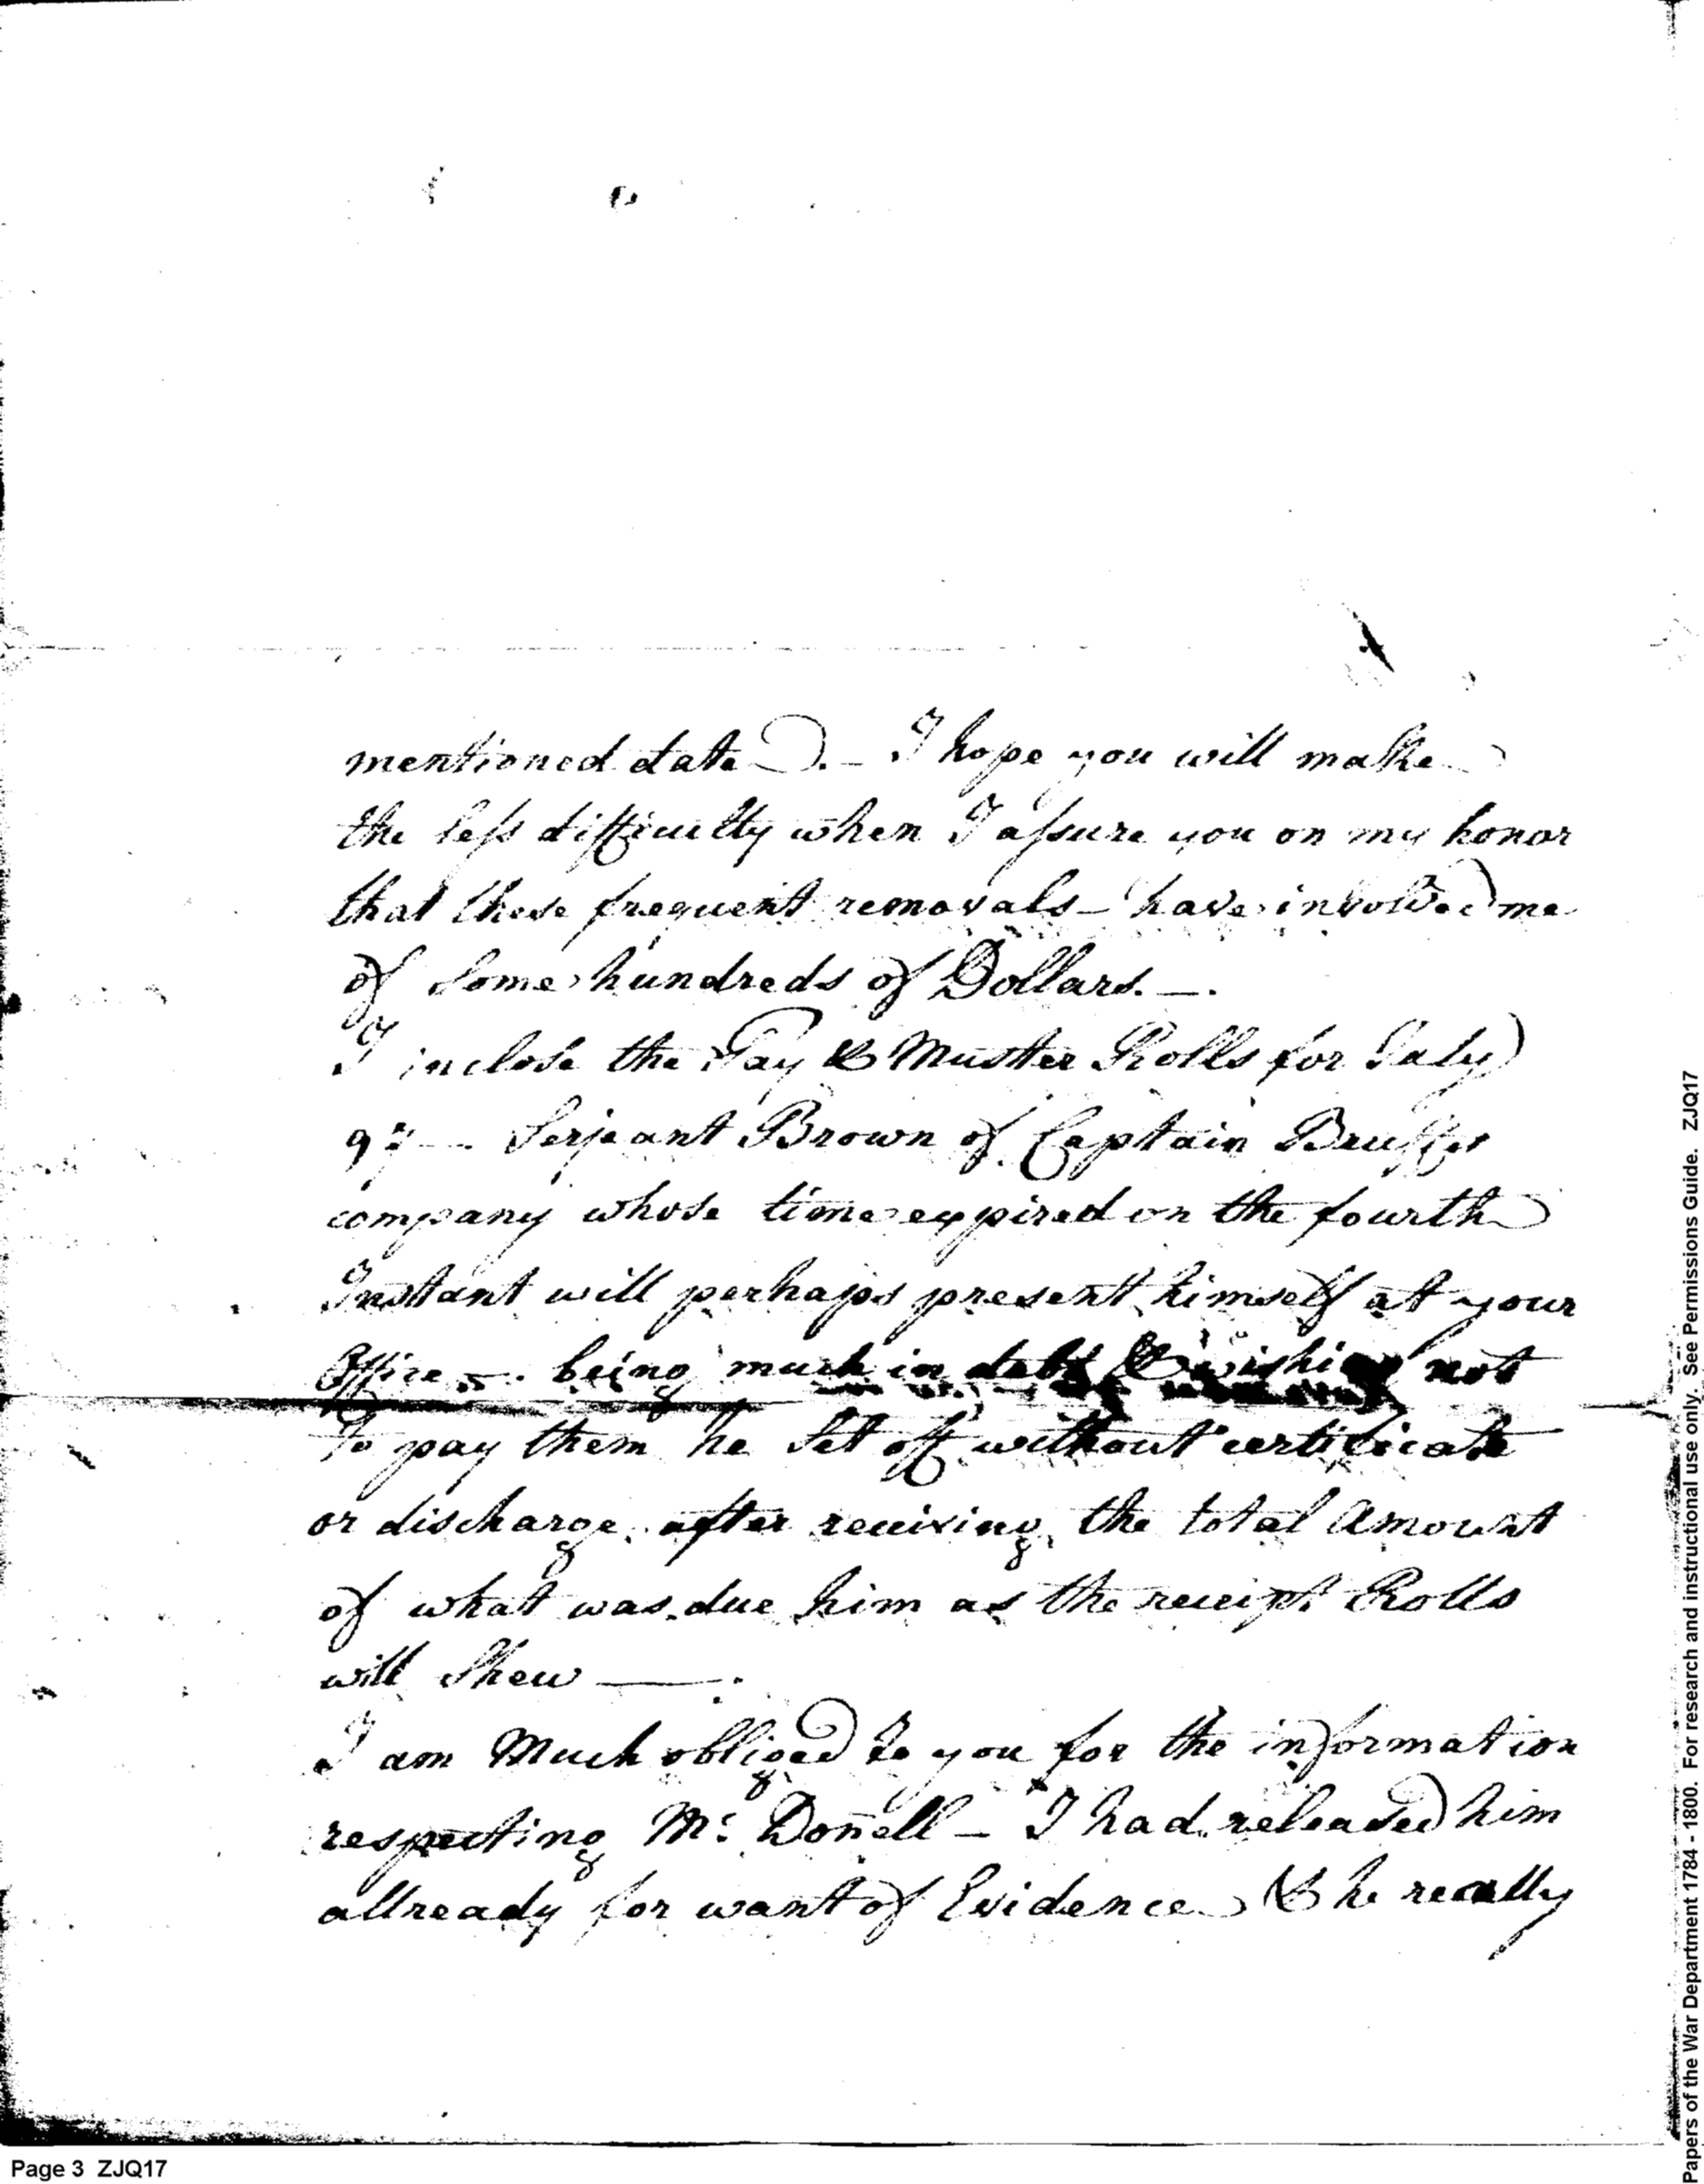 mentioned date. - I hope you will make
the less difficulty when I assure you on my honor
that these frequent removals - have involved me
of some hundreds of Dollars. —.
I inclose the Pay & Muster Rolls for July
97 — Serjeant Brown of Captain
company whose time expired on the fourth
Instant will perhaps present himself at your
Office —. being much in debt & wishing not
to pay them he set off without certificate
or discharge, after receiving the total Amount
of what was due him as the receipt Rolls
will shew —.
I am Much obliged to you for the information
respecting Mc. Donell — I had released him
allready for want of Evidence & he really
Page 3 ZJQ17
Papers of the War Department 1784 - 1800. For research and instructional use only. See Permissions Guide. ZJQ17